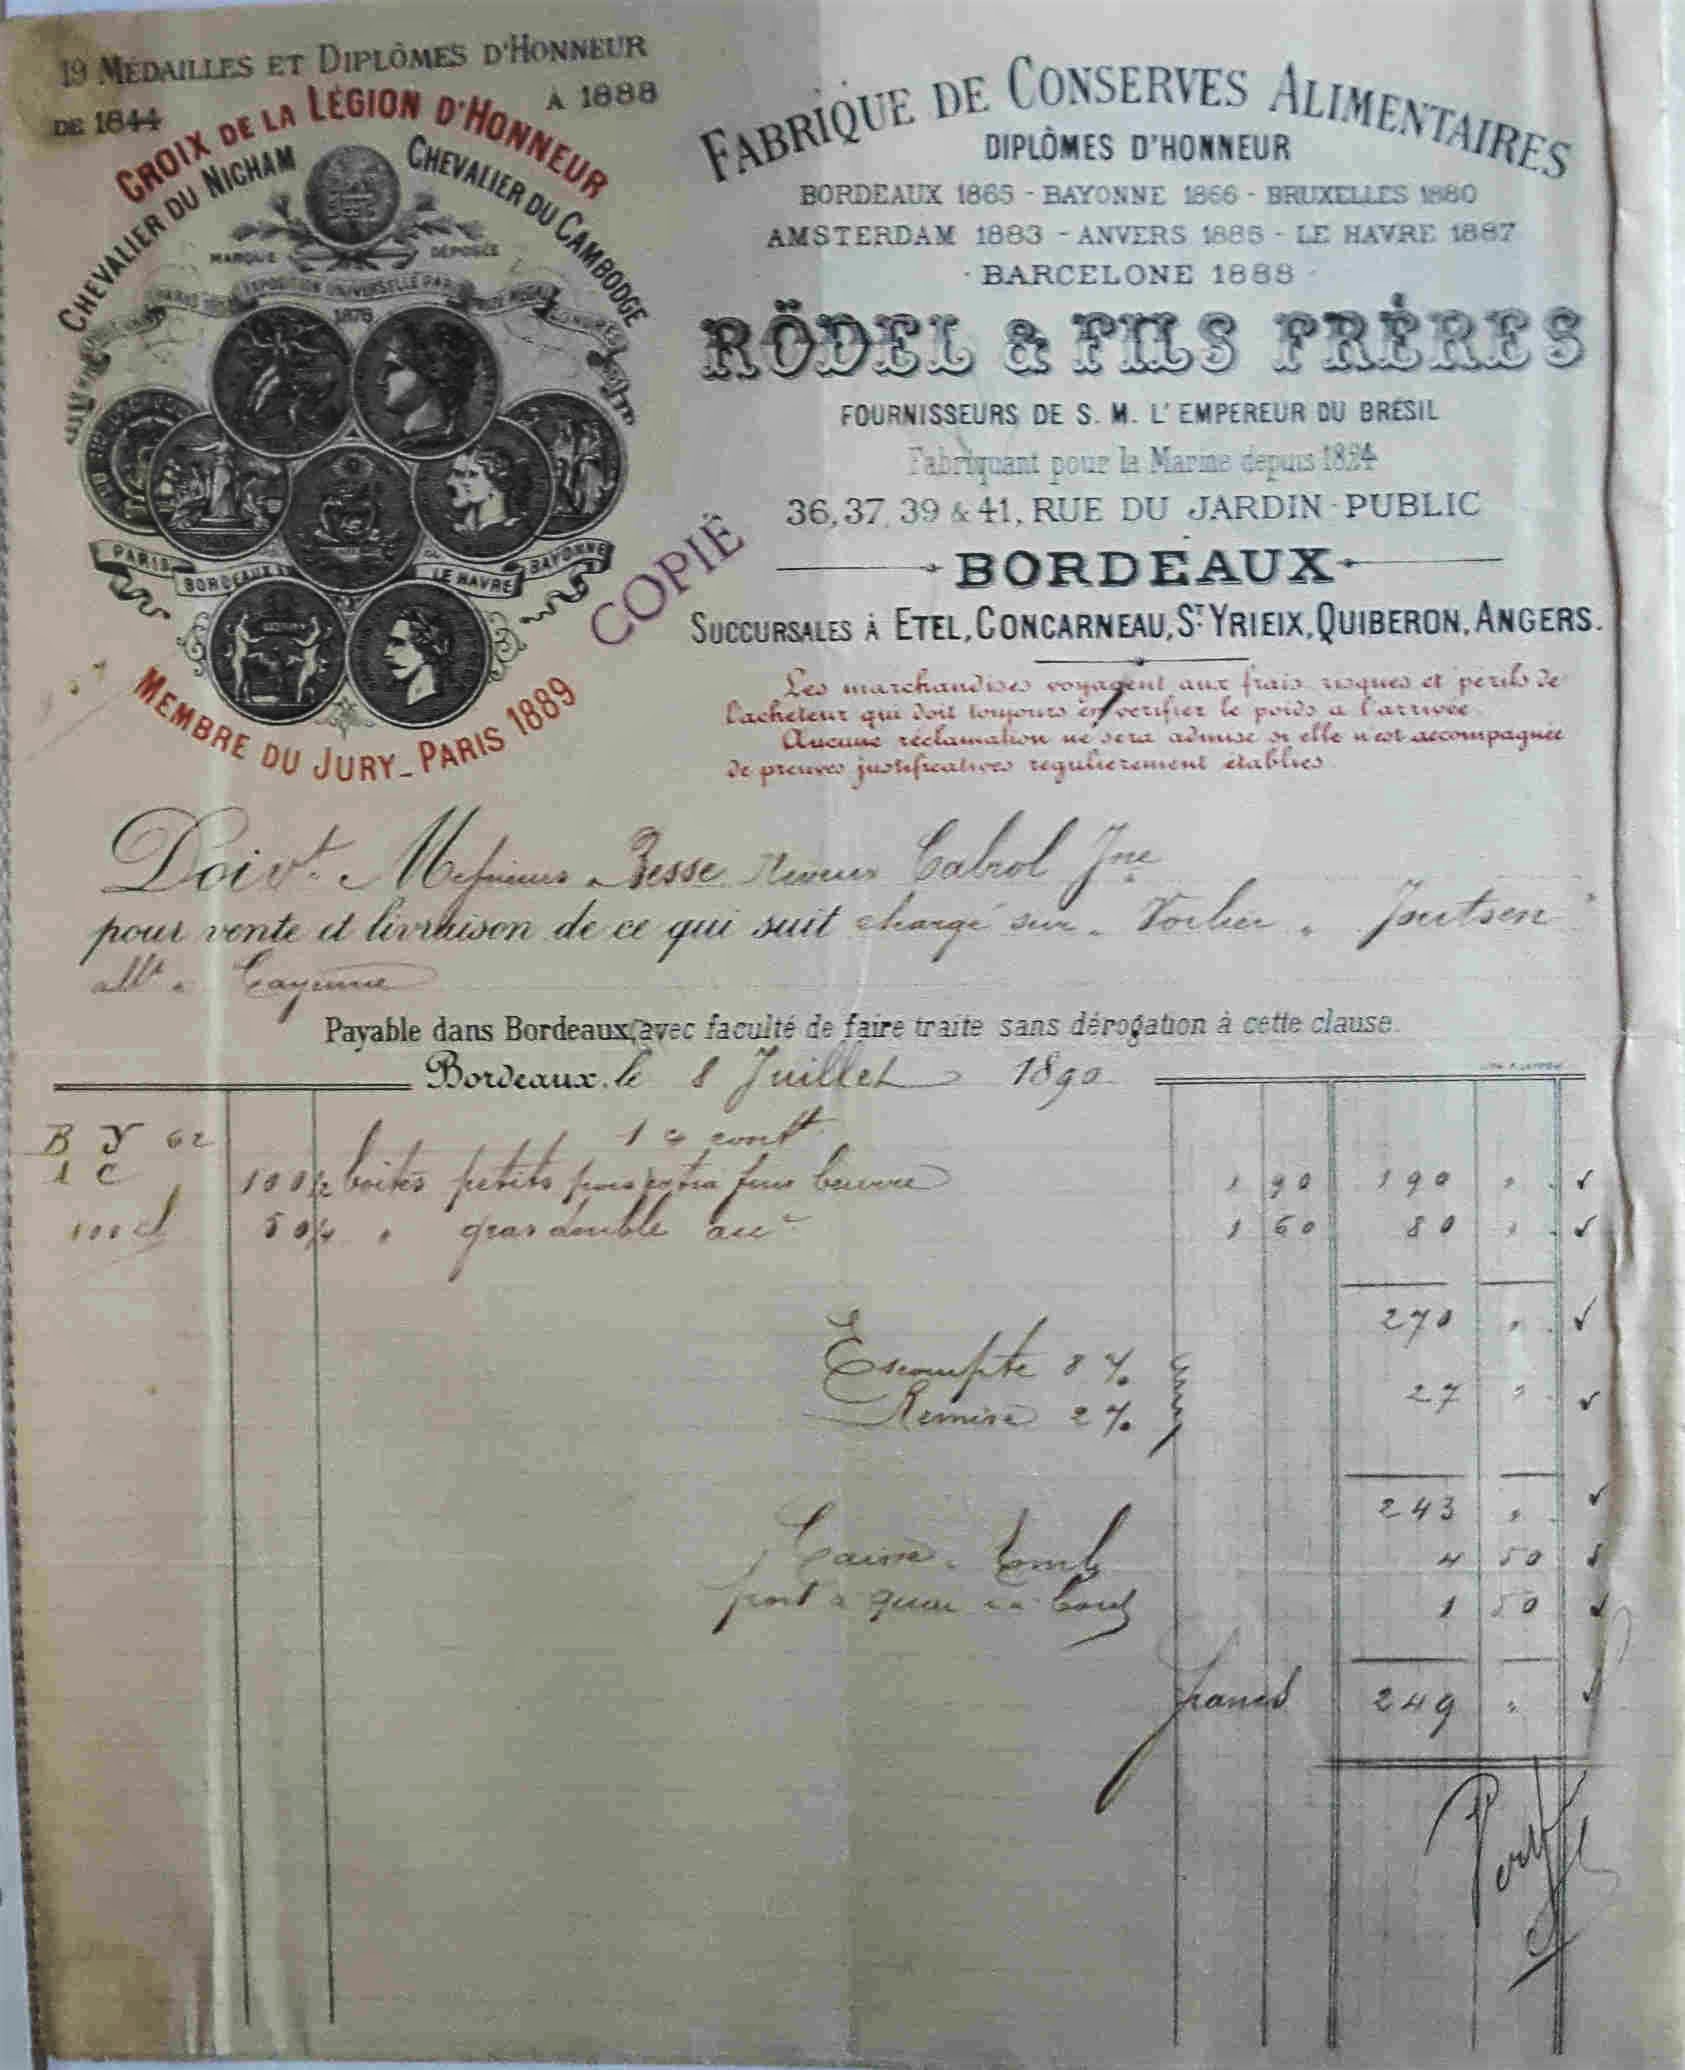 19 MÉDAILLES ET DIPLÔMES D'HONNEUR
DE 1844 À 1888
CROIX DE LA LÉGION D'HONNEUR
CHEVALIER DU NICHAM CHEVALIER DU CAMBODGE
MARQUE DÉPOSÉE
EXPOSITION UNIVERSELLE PARIS
1878
PARIS BORDEAUX LE HAVRE BAYONNE
MEMBRE DU JURY_PARIS 1889
COPIÉ
FABRIQUE DE CONSERVES ALIMENTAIRES
DIPLÔMES D'HONNEUR
BORDEAUX 1865 - BAYONNE 1866 - BRUXELLES 1880
AMSTERDAM 1883 - ANVERS 1885 - LE HAVRE 1887
- BARCELONE 1888 -
RÖDEL & FILS FRÈRES
FOURNISSEURS DE S. M. L'EMPEREUR DU BRÉSIL
Fabriquant pour la Marine depuis 1824
36, 37, 39 & 41, RUE DU JARDIN-PUBLIC
BORDEAUX
SUCCURSALES À ETEL, CONCARNEAU, ST YRIEIX, QUIBERON, ANGERS.
Les marchandises voyagent aux frais, risques et périls de
l'acheteur qui doit toujours en vérifier le poids à l'arrivée.
Aucune réclamation ne sera admise si elle n'est accompagnée
de preuves justificatives régulièrement établies.
Doivt. Messieurs Besse Neveux Cabrol Jne
pour vente et livraison de ce qui suit chargé sur
allt à Cayenne
Payable dans Bordeaux, avec faculté de faire traite sans dérogation à cette clause.
Bordeaux, le 8 Juillet 1890
B Y 62 1 c/ contt
1 C 100 1/2 boites petits pois extra fins beurre 1 90 190 "
50 1/4 " gras double 1 60 80 "
270 "
Escompte 8 %
Remise 2 % 27 "
243 "
Caisse 4 50
port à quai 1 50
francs 249 "